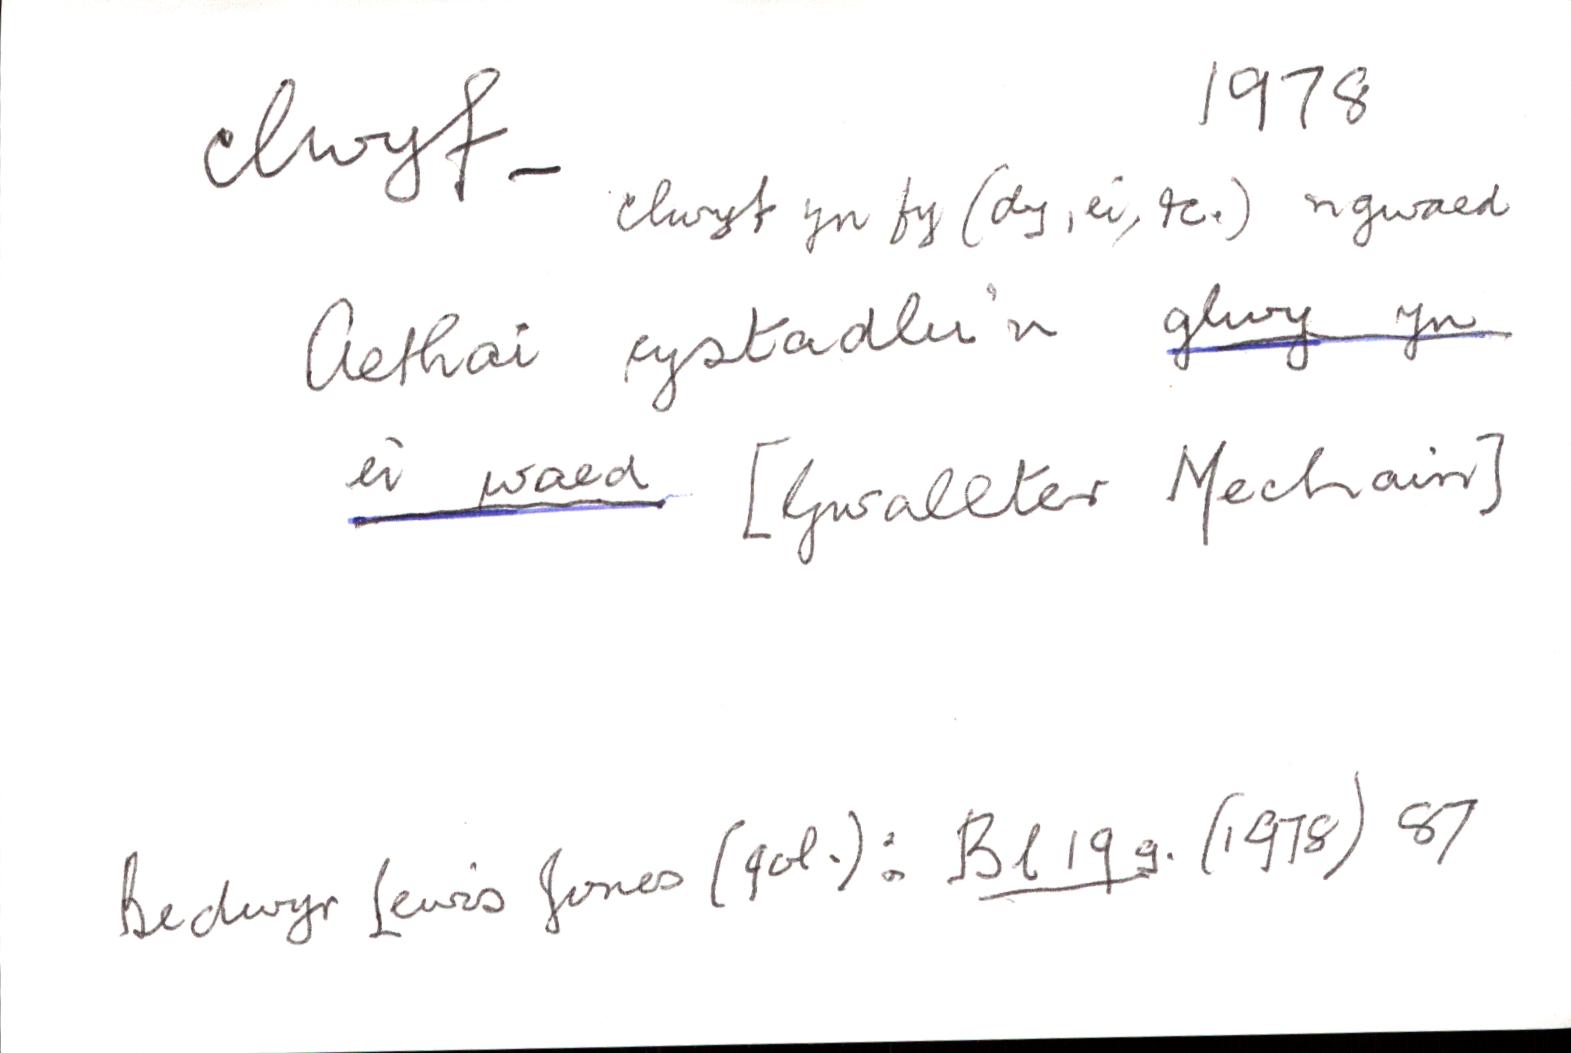 clwyf - 1978
clwyf yn fy (dy, ei, &c.) ngwaed
Aethai cystadlu'n glwy yn
ei waed [Gwallter Mechain]
Bedwyr Lewis Jones (gol.): Bl 19 g. (1978) 87